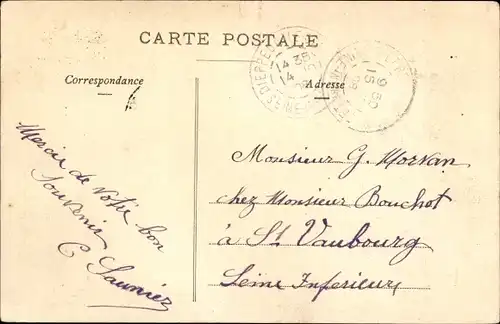 CARTE POSTALE
Correspondance
Adresse
Mercie de votre bon
Souvenir
C Saunier
Monsieur G. Morvan
chez Monsieur Bouchot
à St Vaubourg
Seine Inferieure
DIEPPE
4 35